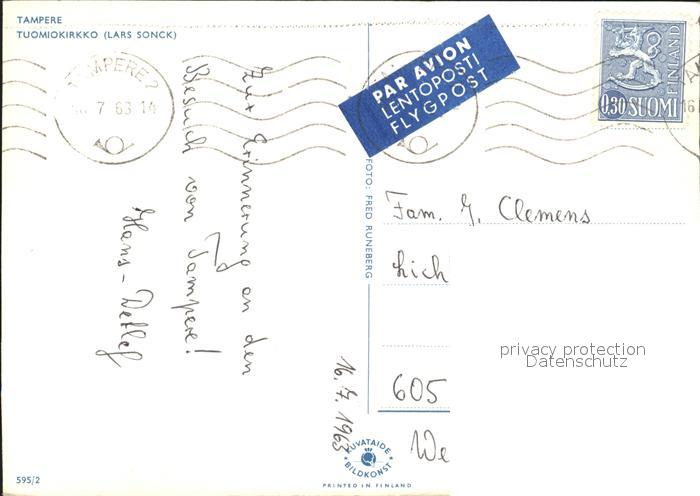 TAMPERE
TUOMIOKIRKKO (LARS SONCK)
TAMPERE 2
7 63-14
PAR AVION
LENTOPOSTI
FLYGPOST
FINLAND
0,30 SUOMI
16
Zur Erinnerung an den
Besuch von Tampere!
Hans-Detlef
16.7.1963
FOTO: FRED RUNEBERG
Fam. G. Clemens
Lich
605
We
privacy protection
Datenschutz
KUVATAIDE
BILDKONST
PRINTED IN FINLAND
595/2